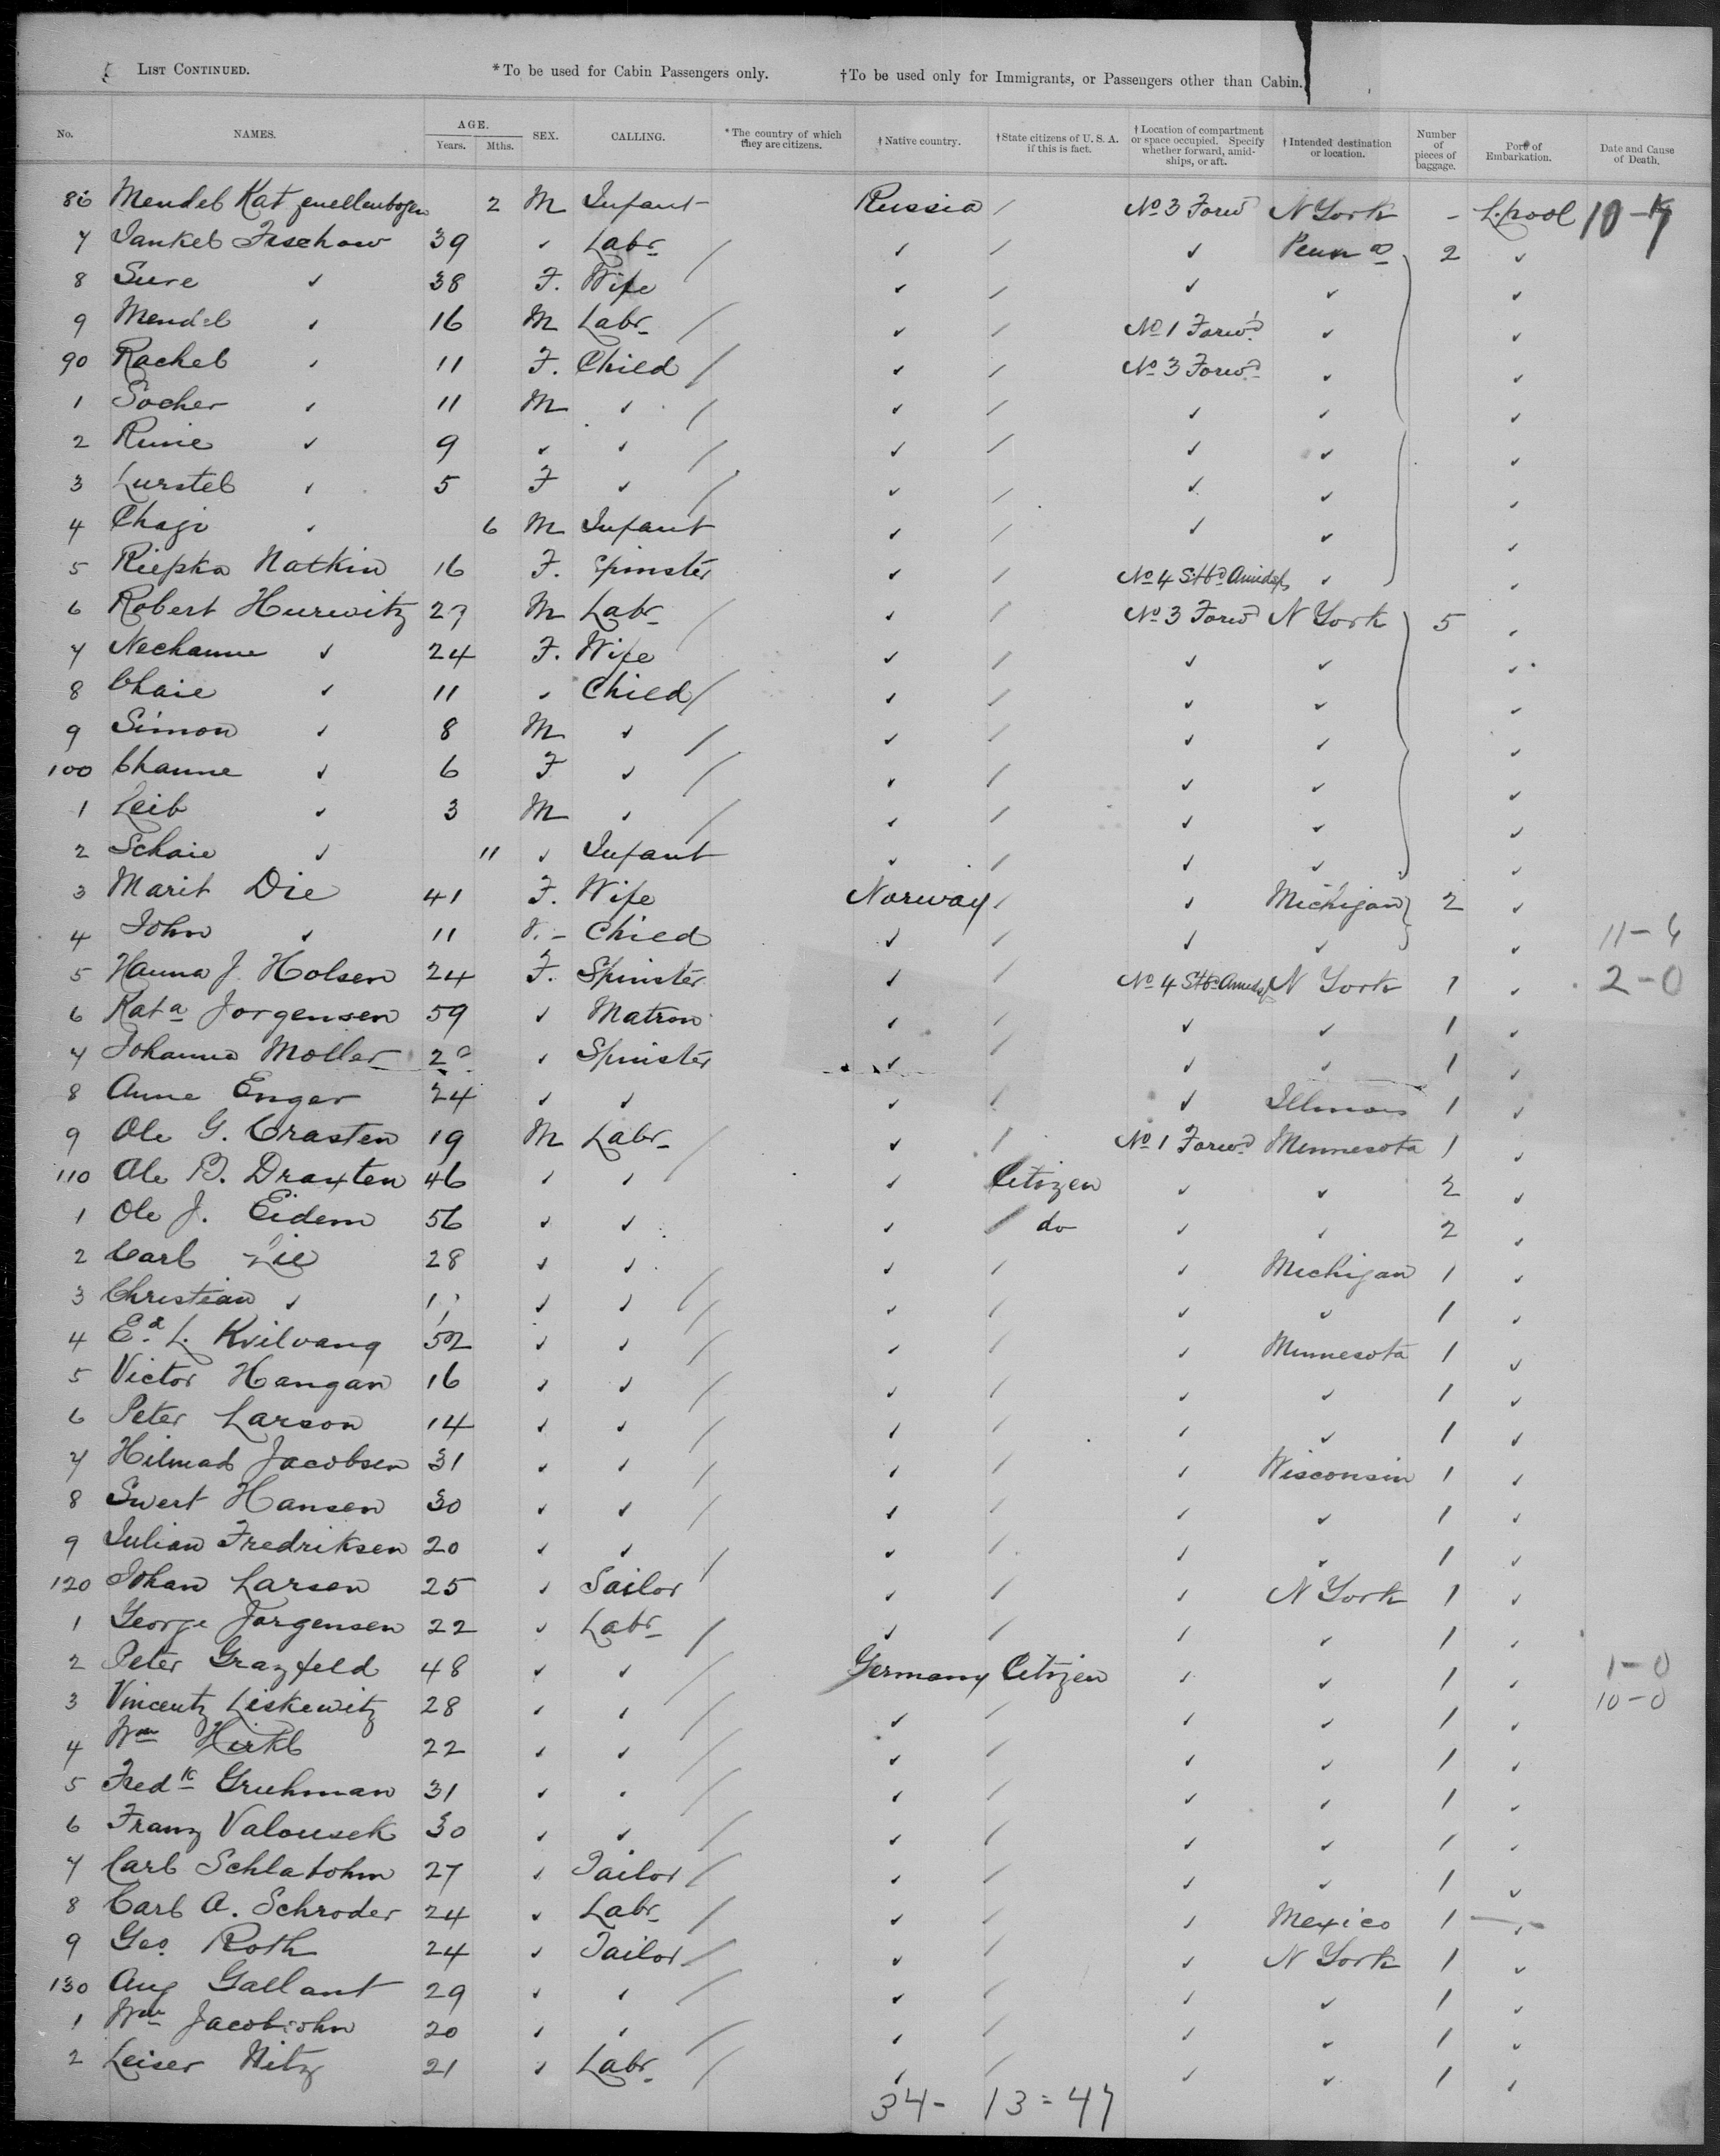 LIST CONTINUED. *To be used for Cabin Passengers only. †To be used only for Immigrants, or Passengers other than Cabin.
No. NAMES. AGE. Years. Mths. SEX. CALLING. *The country of which they are citizens. †Native country. †State citizens of U. S. A. if this is fact. †Location of compartment or space occupied. Specify whether forward, amidships, or aft. †Intended destination or location. Number of pieces of baggage. Port of Embarkation. Date and Cause of Death.
86 Mendel Katzenellenbogen 2 M Infant Russia / No 3 Forwd N York - L.pool 10-
7 Jankel Fischow 39 ✓ Labr / ✓ / ✓ Penna 2 ✓
8 Sure ✓ 38 F. Wife ✓ / ✓ ✓ ✓
9 Mendel ✓ 16 M Labr / ✓ / No 1 Forwd ✓ ✓
90 Rachel ✓ 11 F. Child / ✓ / No 3 Forwd ✓ ✓
1 Socher ✓ 11 M ✓ / ✓ / ✓ ✓ ✓
2 Runie ✓ 9 ✓ ✓ / ✓ / ✓ ✓ ✓
3 Lurstel ✓ 5 F ✓ / ✓ / ✓ ✓ ✓
4 Chaji ✓ 6 M Infant ✓ / ✓ ✓ ✓
5 Riepka Natkin 16 F. Spinster ✓ / No 4 Stbd Amidsps ✓ ✓
6 Robert Hurwitz 27 M Labr / ✓ / No 3 Forwd N York 5 ✓
7 Nechanne ✓ 24 F. Wife ✓ / ✓ ✓ ✓
8 Chaie ✓ 11 ✓ Child / ✓ / ✓ ✓ ✓
9 Simon ✓ 8 M ✓ / ✓ / ✓ ✓ ✓
100 Channe ✓ 6 F ✓ / ✓ / ✓ ✓ ✓
1 Leib ✓ 3 M ✓ / ✓ / ✓ ✓ ✓
2 Schaie ✓ 11 ✓ Infant ✓ / ✓ ✓ ✓
3 Marit Die 41 F. Wife Norway / ✓ Michigan 2 ✓
4 John ✓ 11 Child ✓ / ✓ ✓ ✓ 11-6
5 Hanna J. Holsen 24 F. Spinster ✓ / No 4 Stbd Amidsps N York 1 ✓ 2-0
6 Kata Jorgensen 59 ✓ Matron ✓ / ✓ ✓ 1 ✓
7 Johanna Moller ✓ Spinster ✓ / ✓ ✓ 1 ✓
8 Anne Enger 24 ✓ ✓ ✓ / ✓ Illinois 1 ✓
9 Ole G. Crasten 19 M Labr / ✓ / No 1 Forwd Minnesota 1 ✓
110 Ole B. Draxten 46 ✓ ✓ / ✓ Citizen ✓ ✓ 2 ✓
1 Ole J. Eidem 56 ✓ ✓ ✓ / do ✓ ✓ 2 ✓
2 Carl Lie 28 ✓ ✓ ✓ / ✓ Michigan 1 ✓
3 Christian ✓ ✓ ✓ / ✓ / ✓ ✓ 1 ✓
4 Ed L. Kvilvang 52 ✓ ✓ / ✓ / ✓ Minnesota 1 ✓
5 Victor Hangan 16 ✓ ✓ / ✓ / ✓ ✓ 1 ✓
6 Peter Larson 14 ✓ ✓ / ✓ / ✓ ✓ 1 ✓
7 Hilmab Jacobsen 31 ✓ ✓ / ✓ / ✓ Wisconsin 1 ✓
8 Swert Hansen 30 ✓ ✓ / ✓ / ✓ ✓ 1 ✓
9 Julian Fredriksen 20 ✓ ✓ / ✓ / ✓ ✓ 1 ✓
120 Johan Larsen 25 ✓ Sailor ✓ / ✓ N York 1 ✓
1 George Jorgensen 22 ✓ Labr / ✓ / ✓ ✓ 1 ✓
2 Peter Grazfeld 48 ✓ ✓ / Germany Citizen ✓ ✓ 1 ✓ 1-0
3 Vincentz Liskewitz 28 ✓ ✓ / ✓ / ✓ ✓ 1 ✓ 10-0
4 Wm Hirkl 22 ✓ ✓ / ✓ / ✓ ✓ 1 ✓
5 Fredk Gruhman 31 ✓ ✓ / ✓ / ✓ ✓ 1 ✓
6 Franz Valousek 30 ✓ ✓ / ✓ / ✓ ✓ 1 ✓
7 Carl Schlabohm 27 ✓ Tailor / ✓ / ✓ ✓ 1 ✓
8 Carl A. Schroder 24 ✓ Labr / ✓ / ✓ Mexico 1 ✓
9 Geo Roth 24 ✓ Tailor / ✓ / ✓ N York 1 ✓
130 Aug Gallant 29 ✓ ✓ / ✓ / ✓ ✓ 1 ✓
1 Wm Jacobsohn 20 ✓ ✓ / ✓ / ✓ ✓ 1 ✓
2 Leiser Nitz 21 ✓ Labr / ✓ / ✓ ✓ 1 ✓
34- 13=47